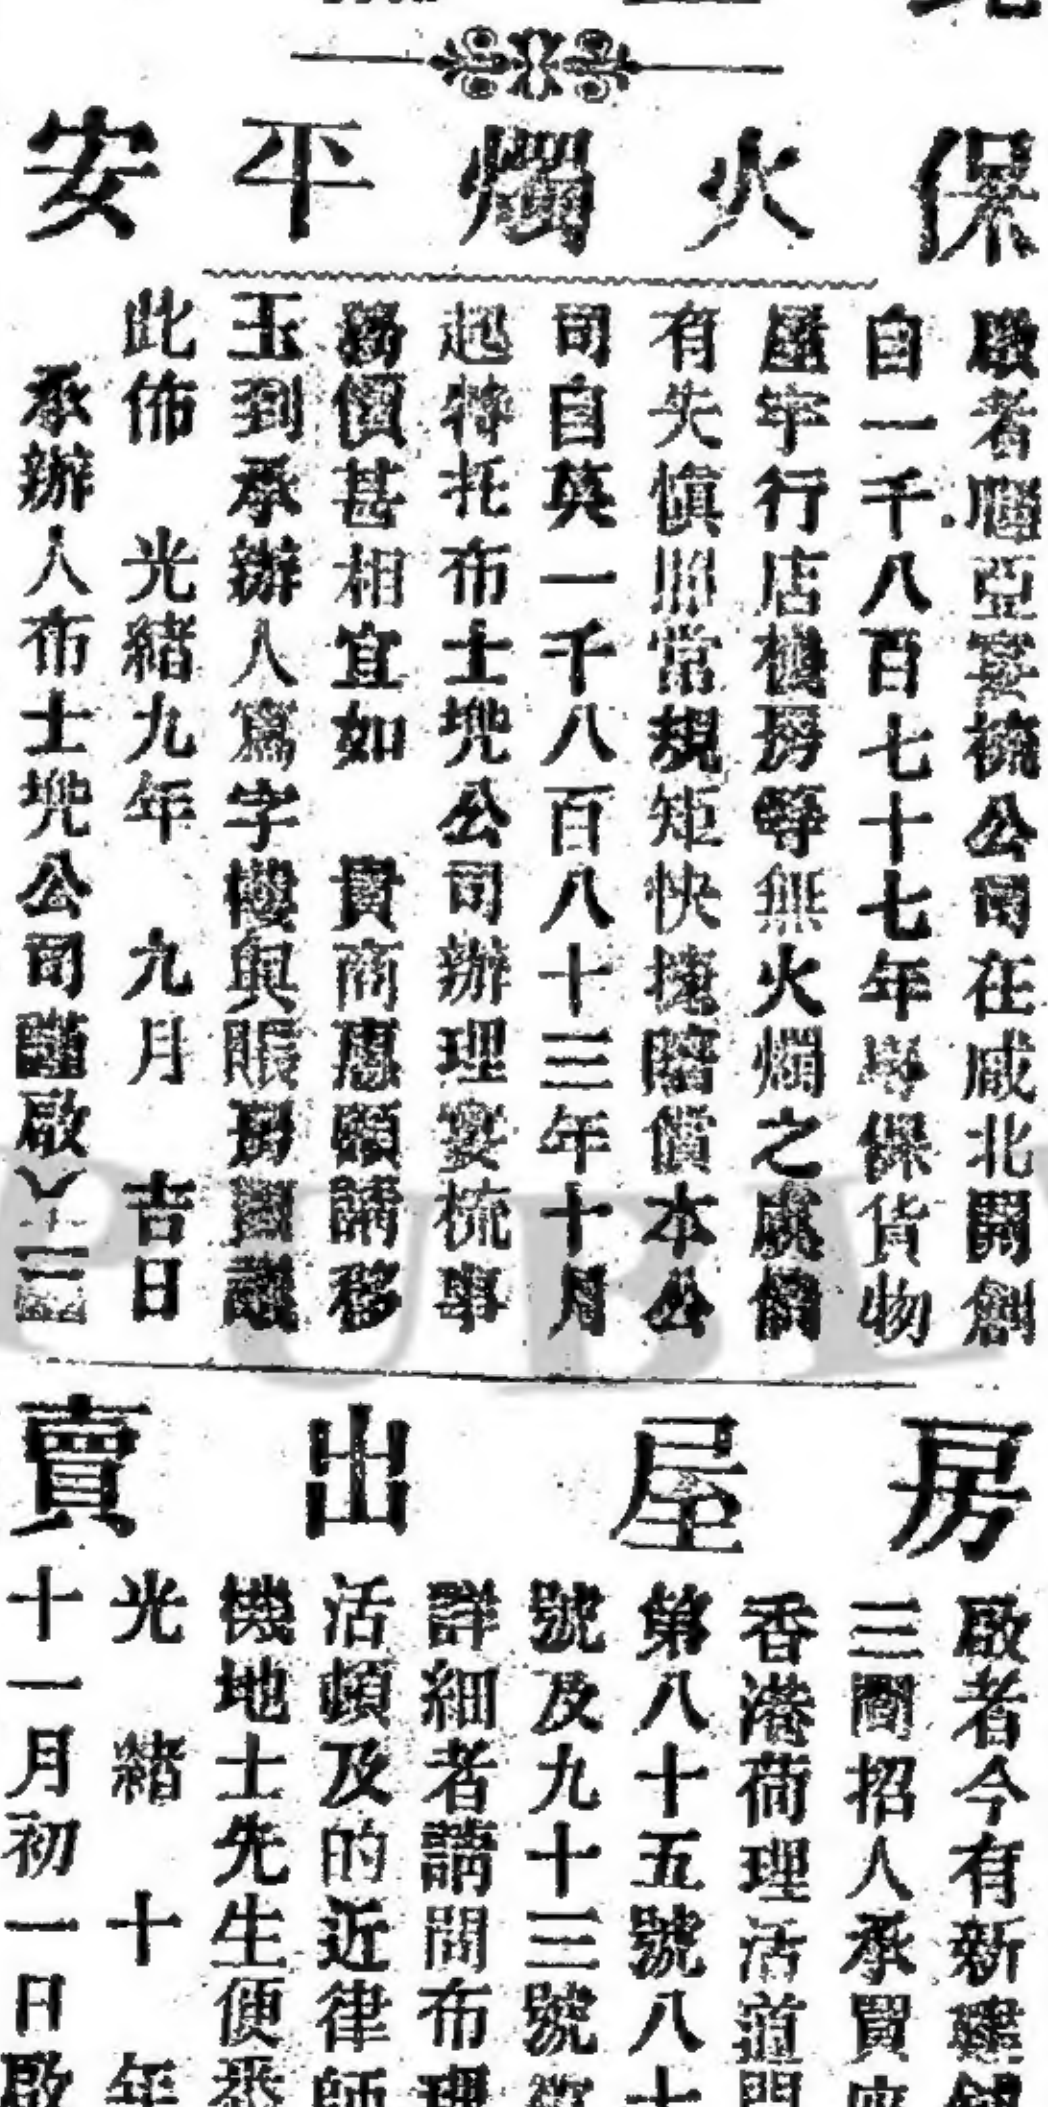 保火燭平安
啟者嗹亞宴梳公司在咸北開創
自一千八百七十七年專保貨物
屋宇行店棧房等無火燭之處倘
有失慎照常規矩快捷賠償本公
司自英一千八百八十三年十月
起特托布士兜公司辦理宴梳事
務價甚相宜如 貴商惠顧請移
玉到承辦人寫字樓與賬房面議
此佈 光緒九年 九月 吉日
承辦人布士兜公司謹啟
房屋出賣
啟者今有新建舖
三間招人承買座
香港荷理活道門
第八十五號八十
號及九十三號
詳細者請問布理
活頓及的近律師
機地士先生便悉
光緒十年
十一月初一日啟
PUBL